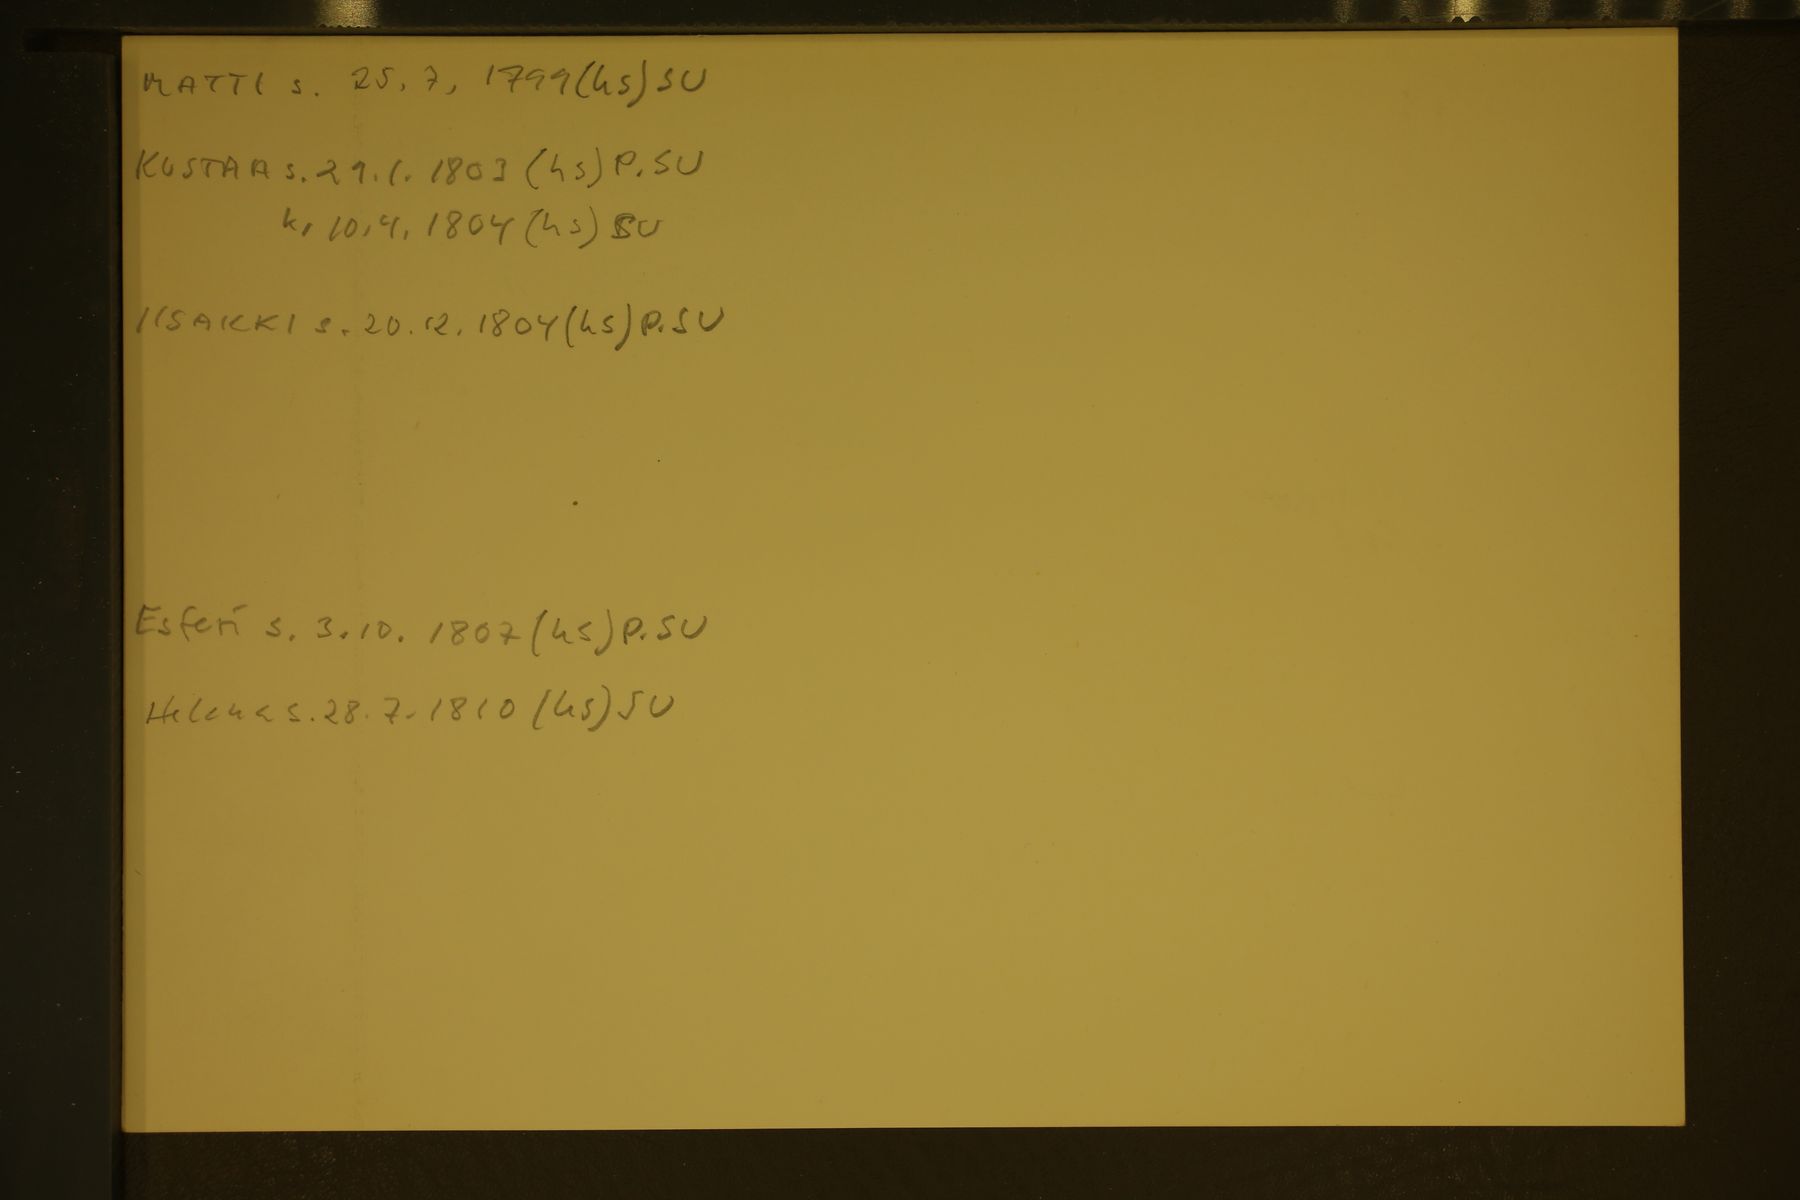 MATTI s. 25.7, 1799 (hs) SU
KUSTAA s. 29.1. 1803 (hs) P. SU
k. 10.4. 1804 (hs) SU
IISAKKI s. 20.12. 1804 (hs) P. SU
Esteri s. 3.10. 1807 (hs) P. SU
Helena s. 28.7. 1810 (hs) SU